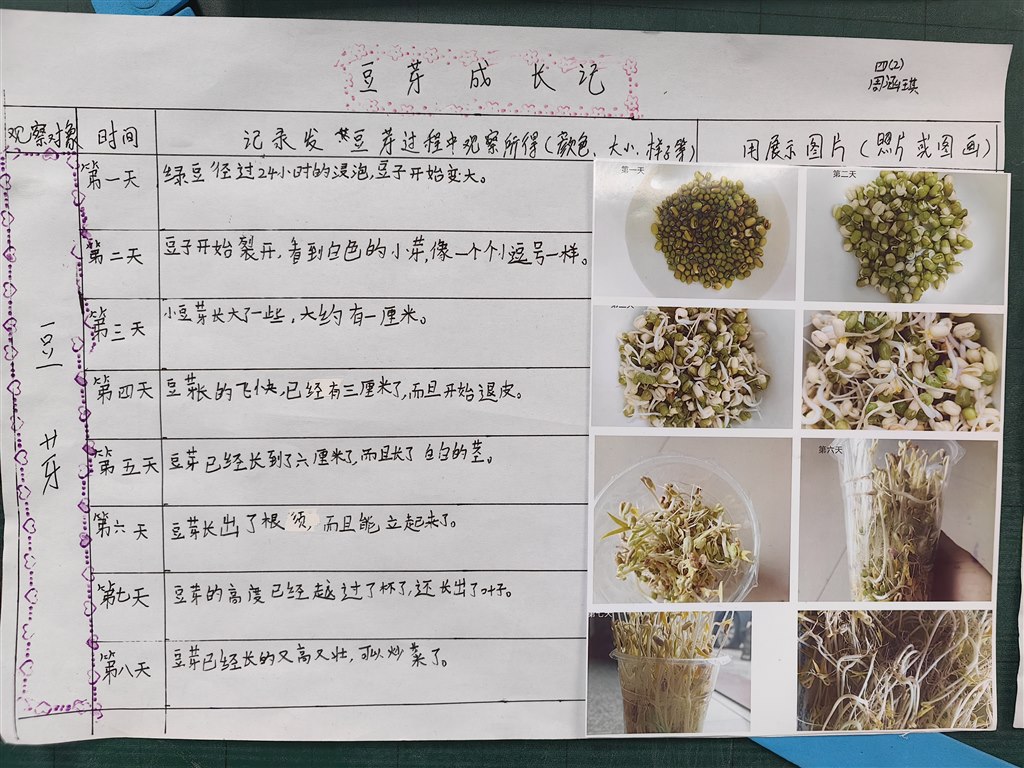 豆芽成长记
四(2)
周涵琪
观察对象
时间
记录发类豆芽过程中观察所得(颜色、大小、样子等)
用展示图片(照片或图画)
豆芽
第一天
绿豆径过24小时的浸泡,豆子开始变大。
第二天
豆子开始裂开,看到白色的小芽,像一个个小逗号一样。
第三天
小豆芽长大了一些,大约有一厘米。
第四天
豆芽长的飞快,已经有三厘米了,而且开始退皮。
第五天
豆芽已经长到了六厘米了,而且长了白白的茎。
第六天
豆芽长出了根须,而且能立起来了。
第七天
豆芽的高度已经越过了杯了,还长出了叶子。
第八天
豆芽已经长的又高又壮,可以炒菜了。
第一天
第二天
第三天
第六天
第七天